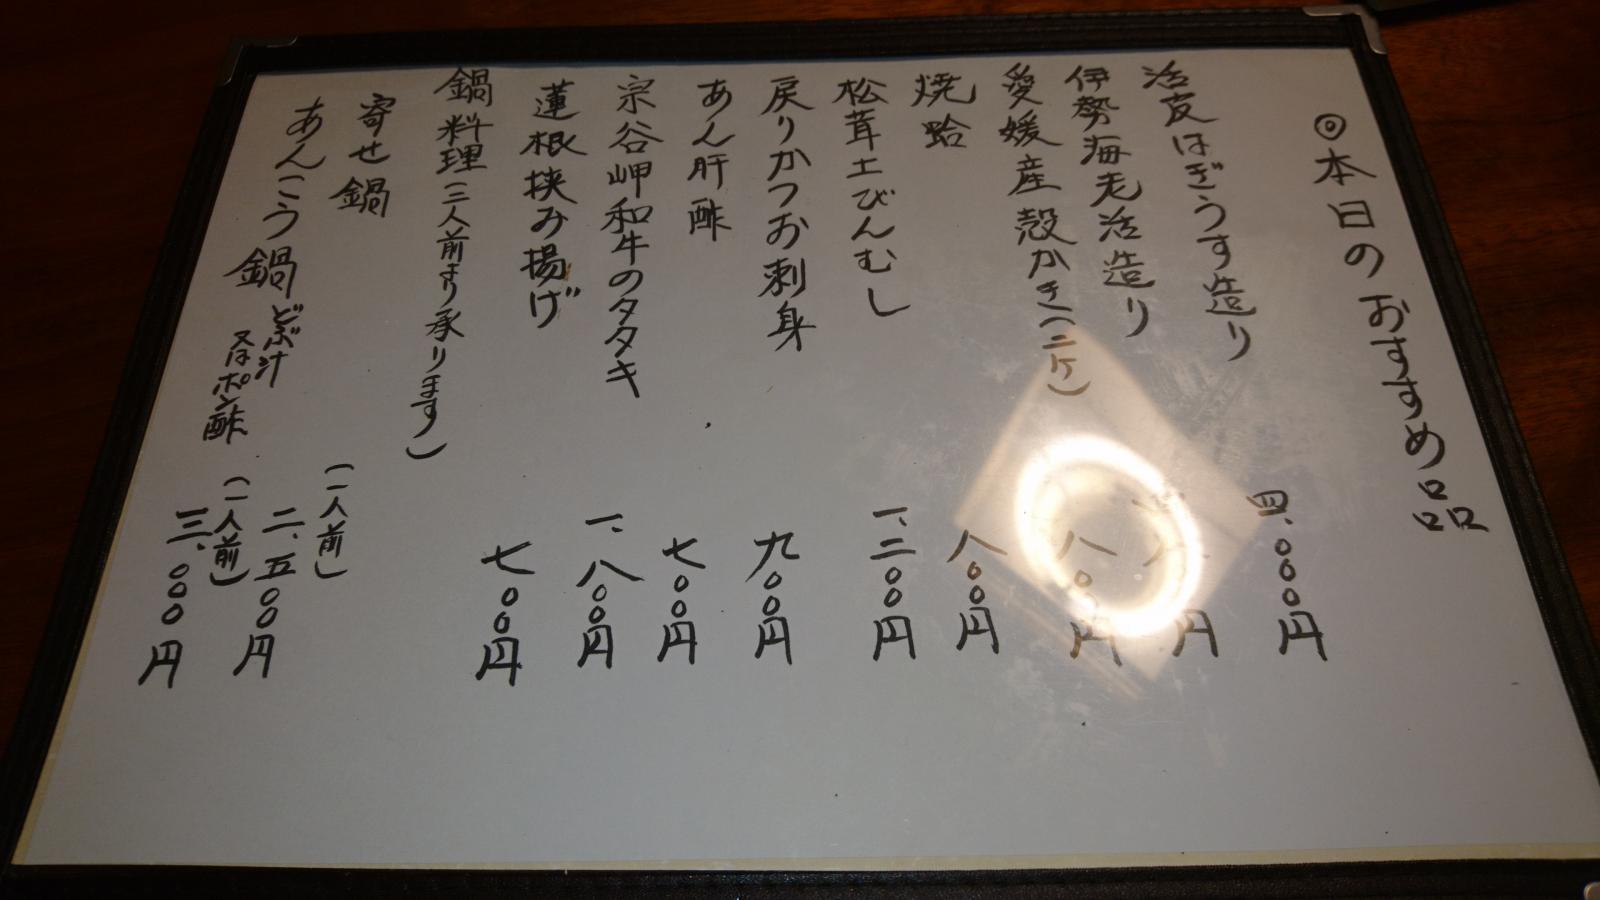 ◎本日のおすすめ品
活皮はぎうす造り 四、〇〇〇円
伊勢海老活造り 円
愛媛産殻かき(二ケ) 八〇〇円
焼蛤 八〇〇円
松茸土びんむし 一、二〇〇円
戻りかつお刺身 九〇〇円
あん肝酢 七〇〇円
宗谷岬和牛のタタキ 一、八〇〇円
蓮根挟み揚げ 七〇〇円
鍋料理(二人前より承ります)
寄せ鍋 (一人前) 二、五〇〇円
あんこう鍋 どぶ汁 又はポン酢 (一人前) 三、〇〇〇円